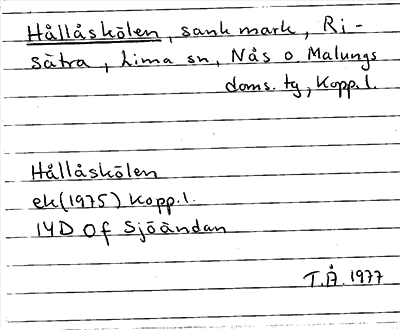 Hållåskölen, sank mark, Ri-
sätra, Lima sn, Nås o. Malungs
doms. tg, Kopp. l.
Hållåskölen
ek (1975) Kopp. l.
14D 0f Sjöändan
T.Å. 1977